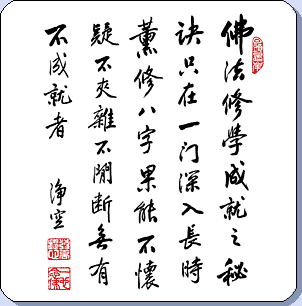 佛法修學成就之秘
訣只在一门深入長時
薰修八字果能不懷
疑不夾雜不間断無有
不成就者
淨空